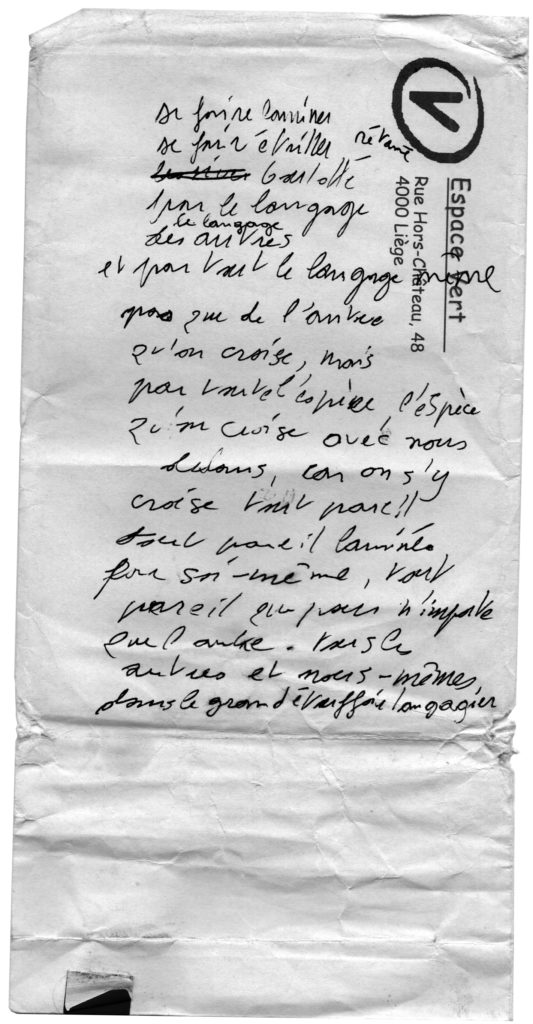 se faire laminer
se faire étriller
ballotté
par le langage
le langage
des autres
et par tout le langage même
pas que de l'autre
qu'on croise, mais
par toute l'espèce
qu'on croise avec nous
dedans, car on s'y
croise tout pareil
tout pareil laminés
par soi-même, tout
pareil que par n'importe
quel autre. tous les
autres et nous-mêmes,
dans le grand langagier
V
Espace Vert
Rue Hors-Château, 48
4000 Liège